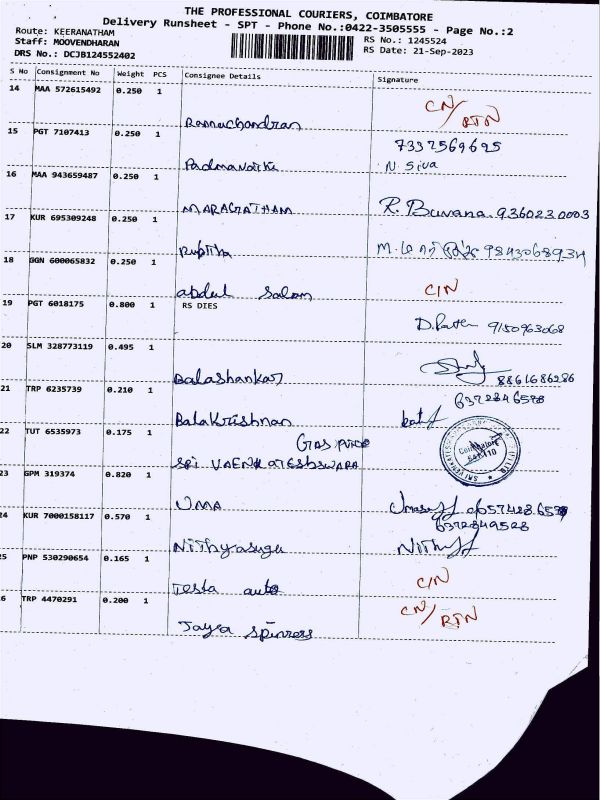 THE PROFESSIONAL COURIERS, COIMBATORE
Delivery Runsheet - SPT - Phone No.:0422-3505555 - Page No.:2
Route: KEERANATHAM
Staff: MOOVENDHARAN
DRS No.: DCJB124552402
RS No.: 1245524
RS Date: 21-Sep-2023
S No Consignment No Weight PCS Consignee Details Signature
14 MAA 572615492 0.250 1
Ramachandran CN/RTN
15 PGT 7107413 0.250 1
7337569695
Padmavathi N. Siva
16 MAA 943659487 0.250 1
MARAGATHAM R. Buvana 9360230003
17 KUR 695309248 0.250 1
9843068934
18 GGN 600065832 0.250 1
abdul Salam C/N
19 PGT 6018175 0.800 1 RS DIES
9150963068
20 SLM 328773119 0.495 1
Balashankar 8861686286
21 TRP 6235739 0.210 1
6372846578
Balakrishnan
22 TUT 6535973 0.175 1
Gas
SRI VAENKATESHSWARA
Coimbatore
23 GPM 319374 0.820 1
UMA
24 KUR 7000158117 0.570 1
6372849528
Nithyasuga
25 PNP 530290654 0.165 1
Testa auto C/N
26 TRP 4470291 0.200 1
CN/RTN
Jayea spinners